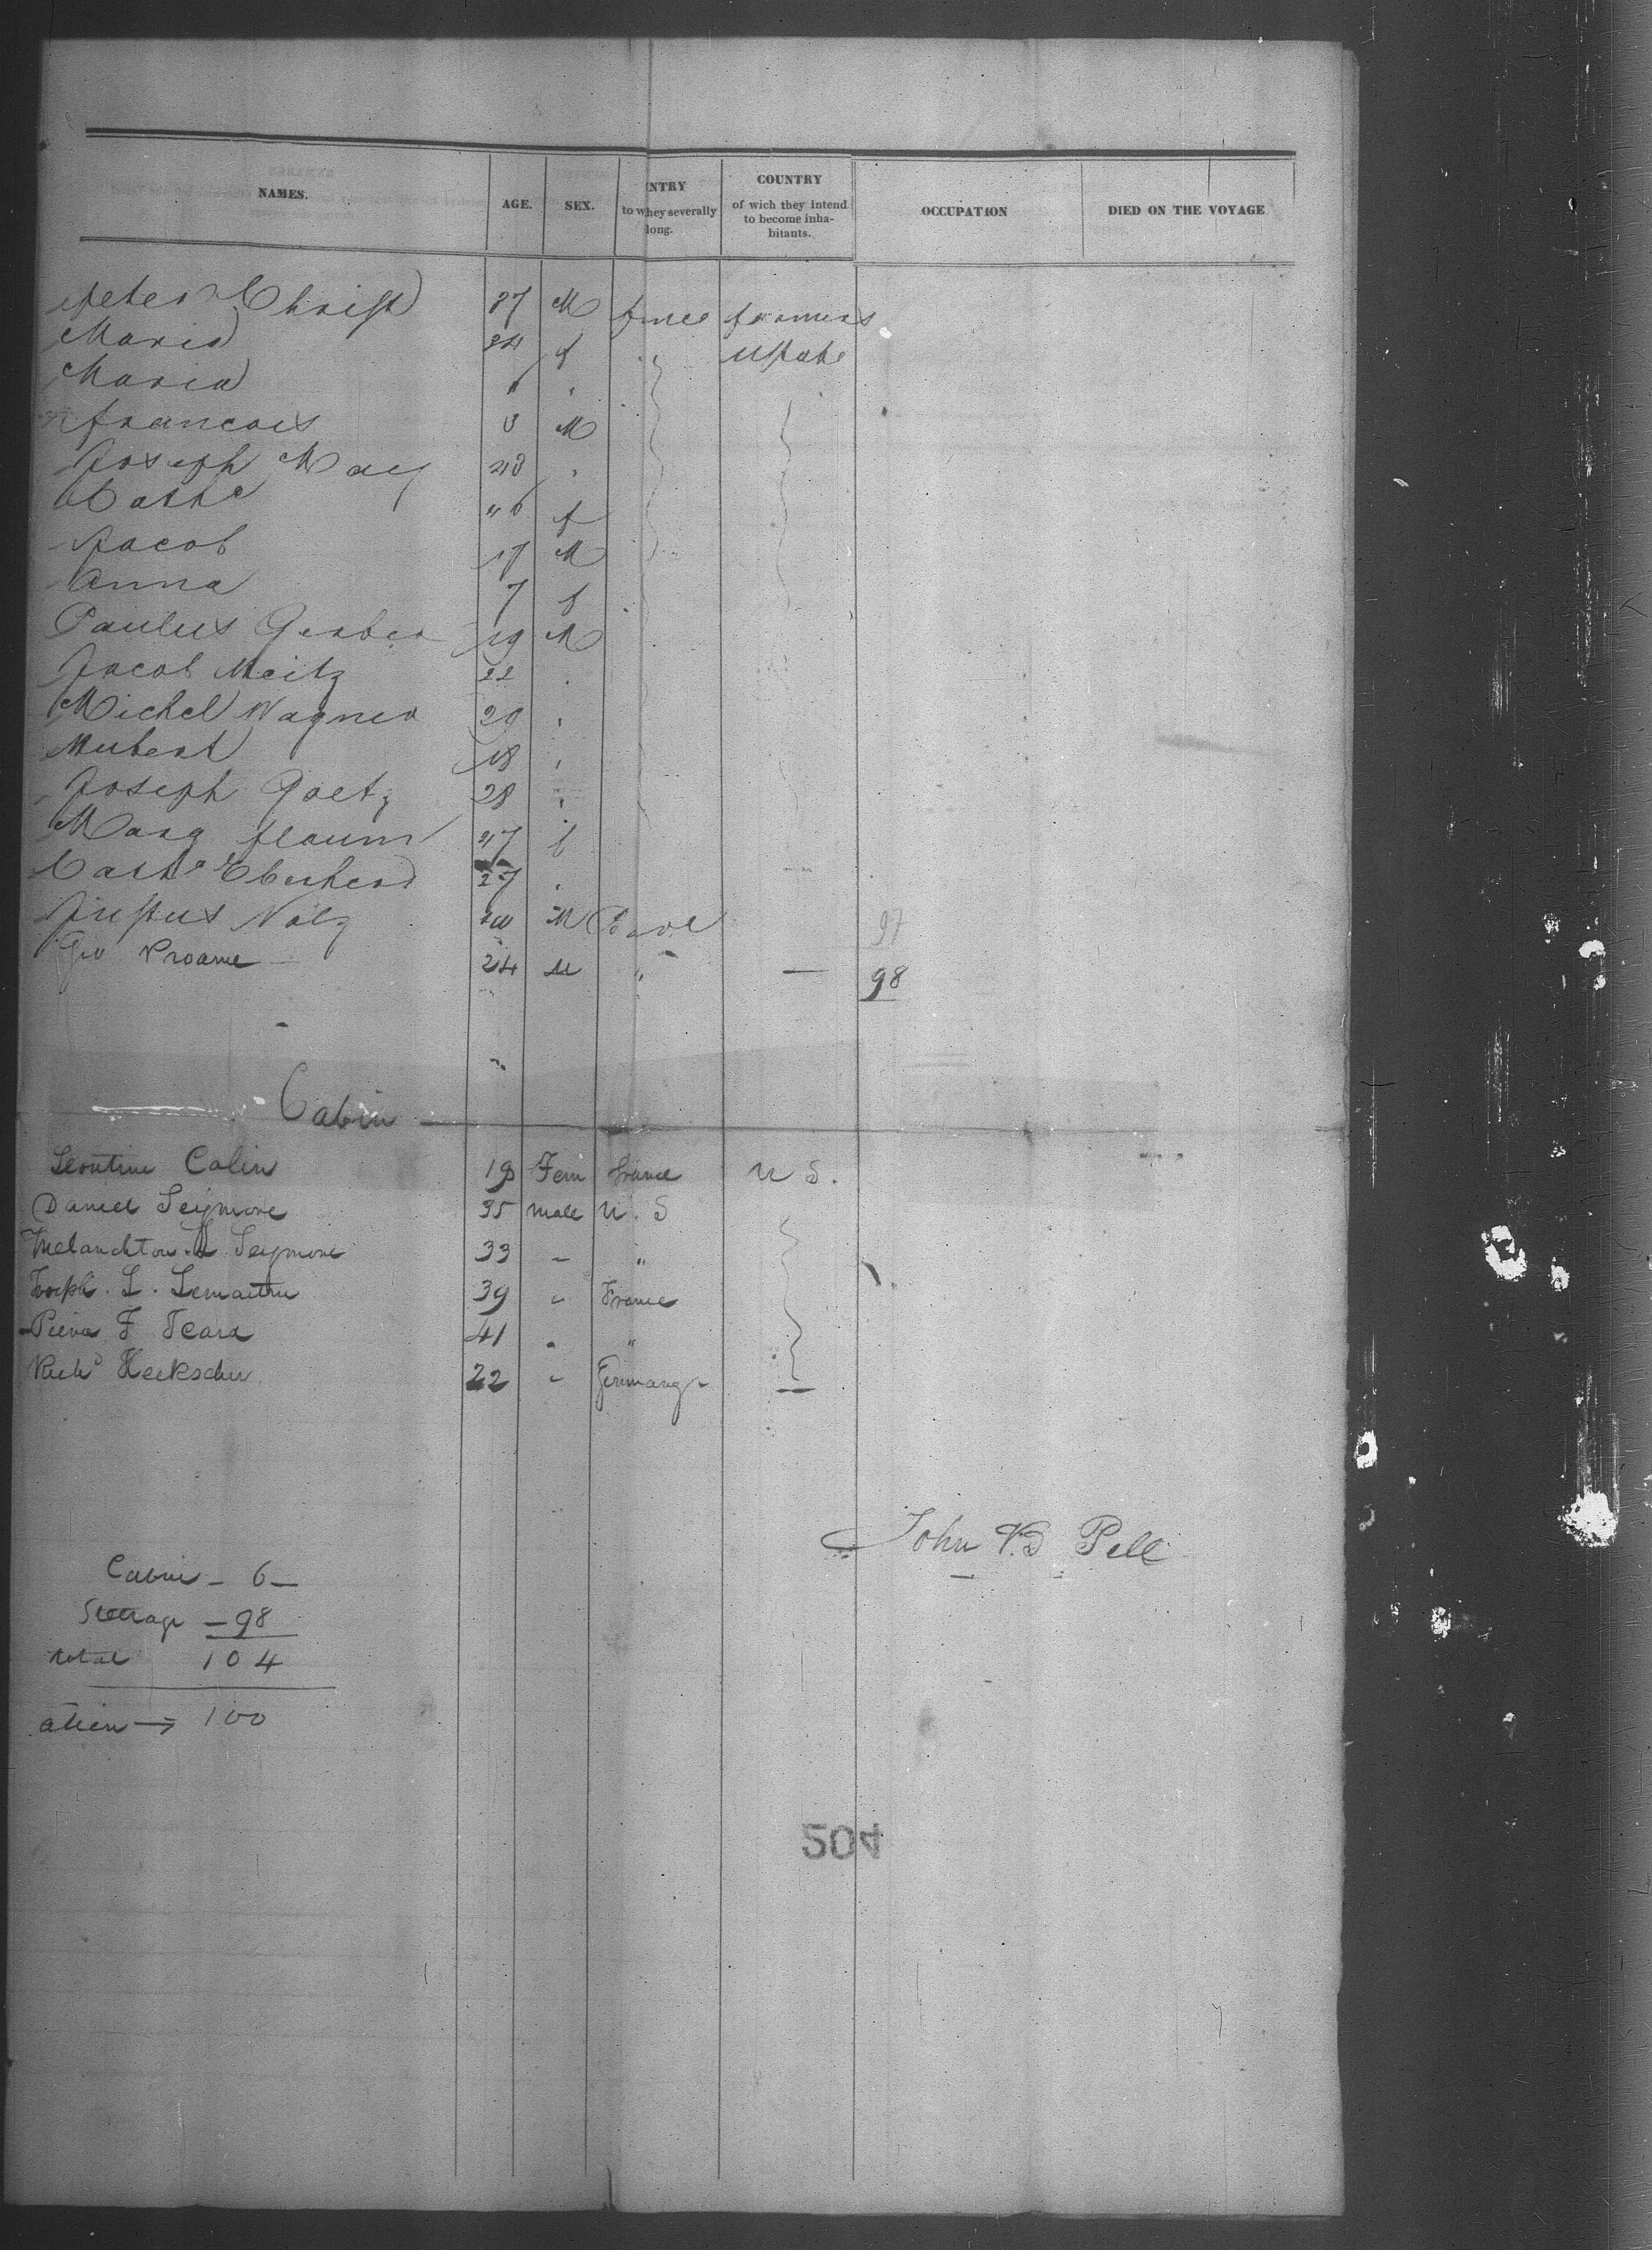 NAMES. AGE. SEX. NTRY to whey severally long. COUNTRY of wich they intend to become inhabitants. OCCUPATION DIED ON THE VOYAGE
Peter Christ 37 M
Maria 24 f
Maria
francois 3 M
Joseph May
Cathe f
Jacob 17 M
Anna 7 f
Paulus Gerber 19 M
Jacob Meitz 22
Michel Wagner 29
18
Joseph Goetz 28
Marg flaum 47 f
Cathe Eberhard 27
Justus M 97
Geo 24 M " — 98
Cabin
Leontine Colin 19 Fem france U S.
Daniel Seymore 35 male U. S
Melanchton. L Seymore 33 - "
Joseph. L. Lemaitre 39 " France
Pierre F 41 " "
Richd Heckscher 22 " Germany -
John B Pell
Cabin - 6 -
Steerage - 98
total 104
alien 100
504